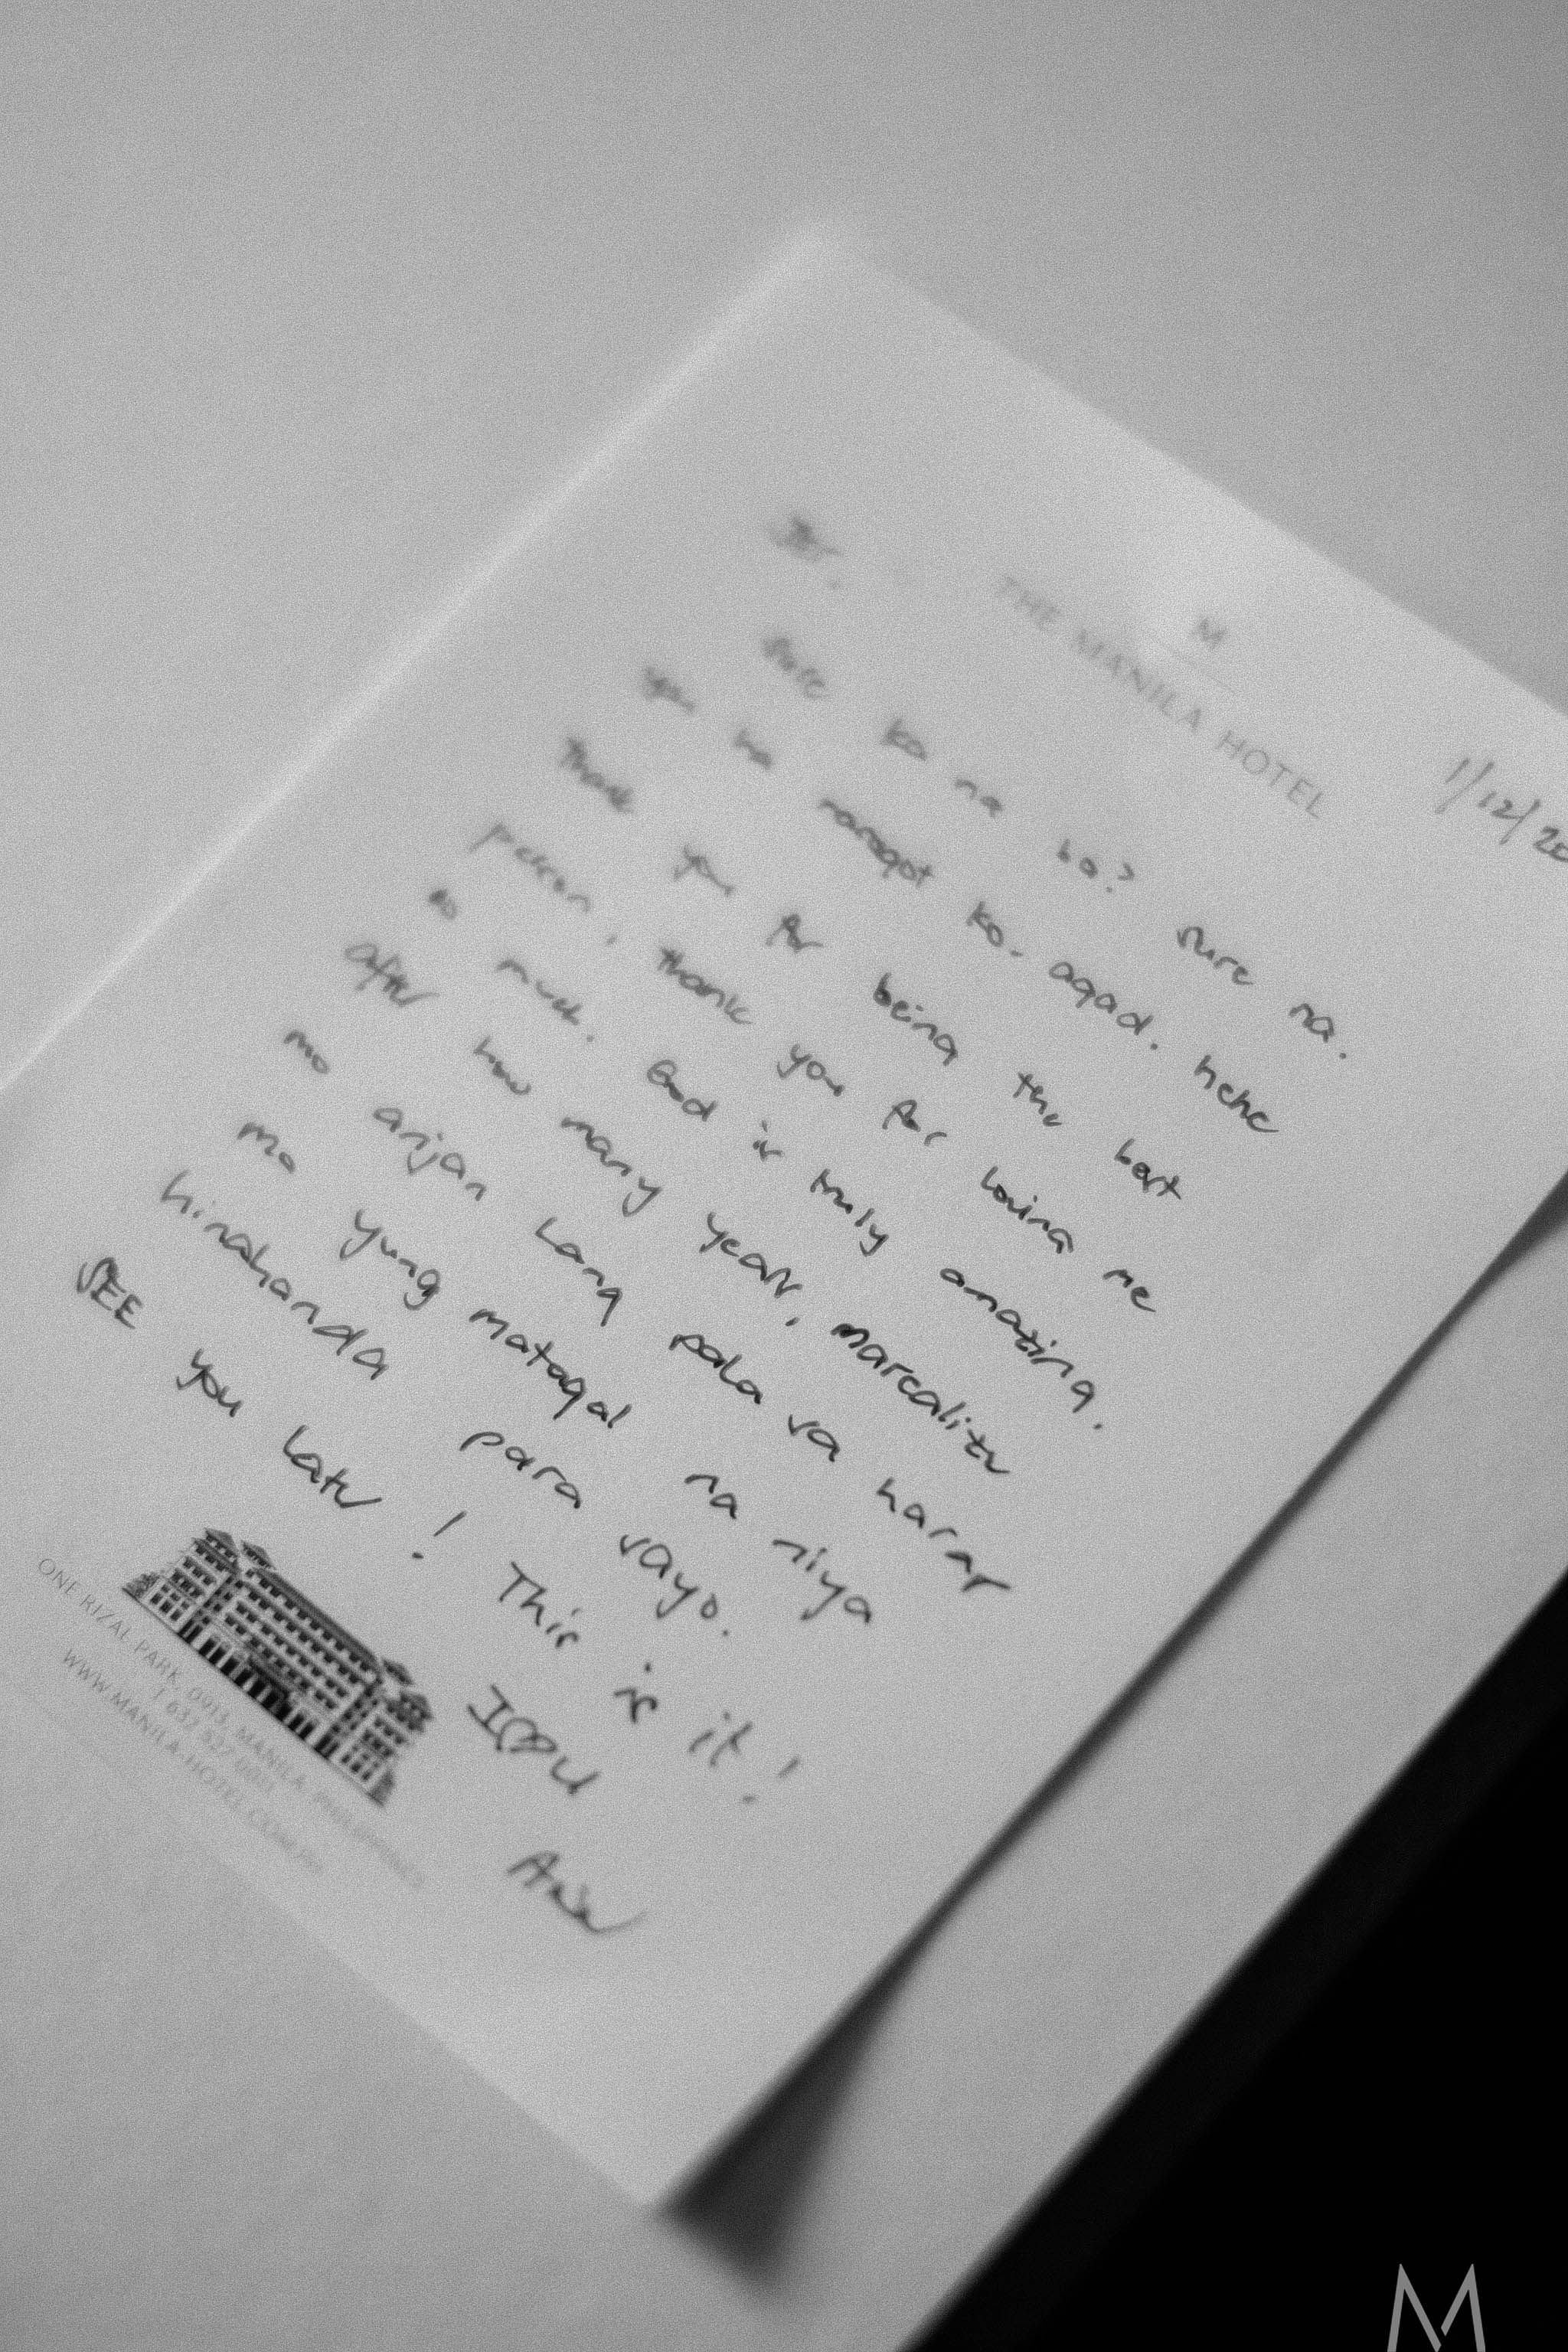 M
THE MANILA HOTEL
1/12/20
Jer,
Sure ka na ba? Sure na.
yan na nasagot ko agad. hehe
Thank you for being the best
person, thank you for loving me
so much. God is truly amazing.
After how many years, marealize
mo anjan lang pala sa harap
mo yung matagal na niya
hinahanda para sayo.
SEE you later! This is it!
I♡U
ONE RIZAL PARK, 0913, MANILA, PHILIPPINES
T 632 527 0011
WWW.MANILA-HOTEL.COM.PH
M